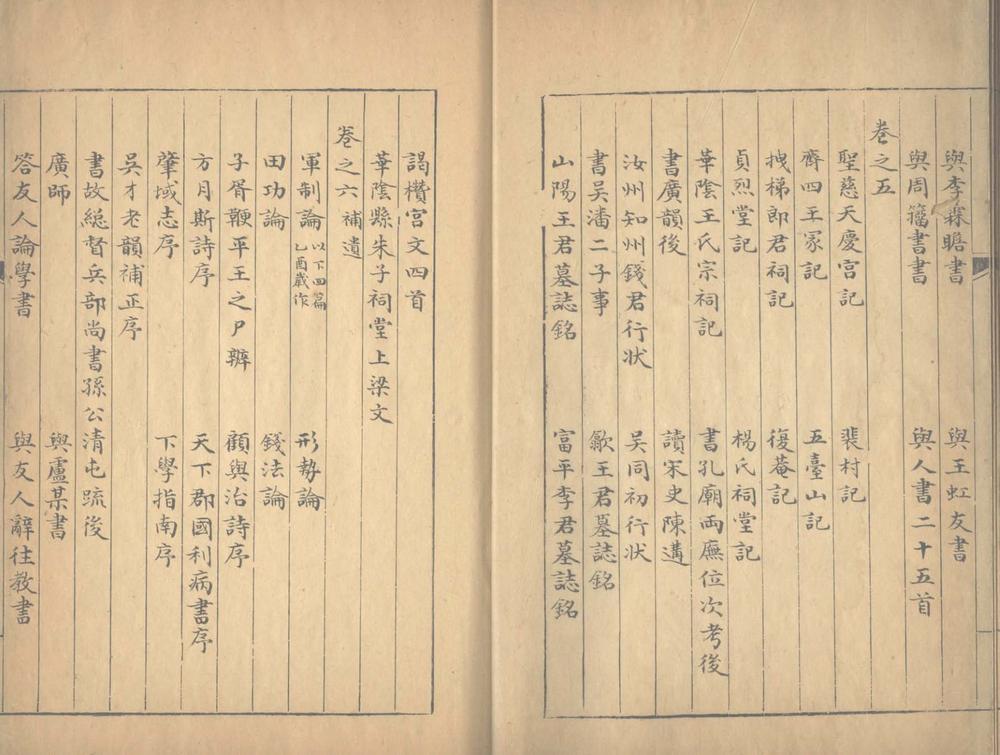 與李霖瞻書 與王虹友書
與周籀書書 與人書二十五首
卷之五
聖慈天慶宮記 裴村記
齊四王冢記 五臺山記
拽梯郎君祠記 復菴記
貞烈堂記 楊氏祠堂記
華陰王氏宗祠記 書孔廟兩廡位次考後
書廣韻後 讀宋史陳遘
汝州知州錢君行狀 吳同初行狀
書吳潘二子事 歙王君墓誌銘
山陽王君墓誌銘 富平李君墓誌銘
謁欑宮文四首
華陰縣朱子祠堂上梁文
卷之六 補遺
軍制論 以下四篇乙酉歲作 形勢論
田功論 錢法論
子胥鞭平王之尸辨 顧與治詩序
方月斯詩序 天下郡國利病書序
肇域志序 下學指南序
吳才老韻補正序
書故總督兵部尚書孫公清屯疏後
廣師 與盧某書
答友人論學書 與友人辭往教書